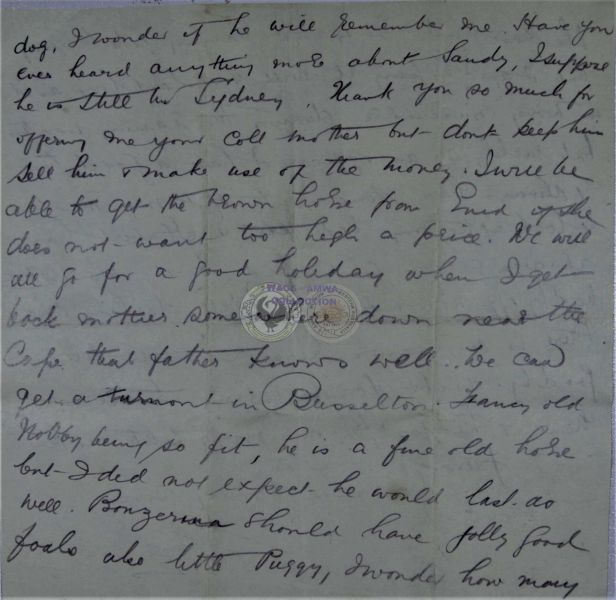 dog, I wonder if he will remember me. Have you
ever heard anything more about Sandy, I suppose
he is still in Sydney. Thank you so much for
offering me your colt mother but dont keep him
sell him & make use of the money. I will be
able to get the brown horse from Enid if she
does not want too high a price. We will
all go for a good holiday when I get
back mother somewhere down near the
Cape that father knows well. We can
get a turnout in Busselton. Fancy old
Nobby being so fit, he is a fine old horse
but I did not expect he would last so
well. should have jolly good
foals also little Puggy, I wonder how many
WAGS - AMWA
COLLECTION